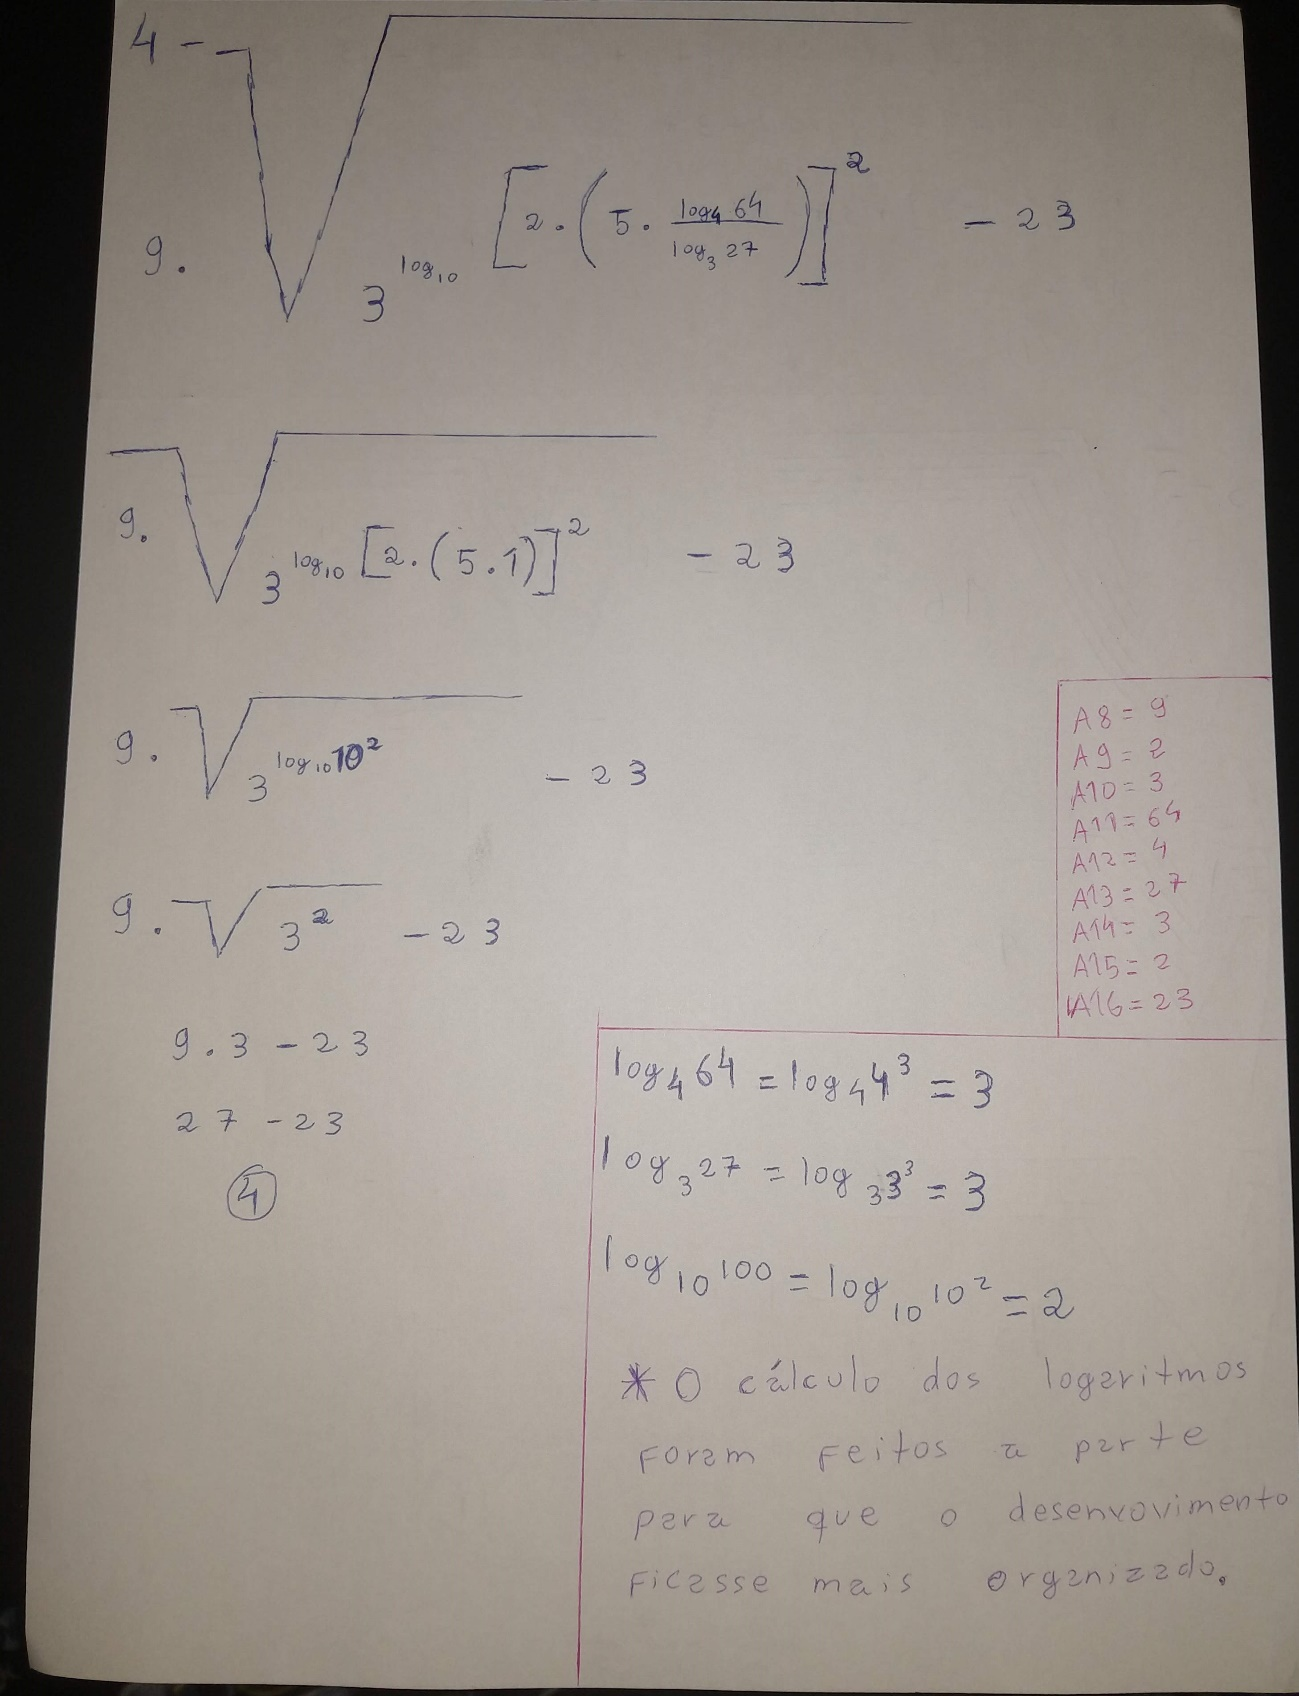 4 - 9. √ 3^log₁₀ [2.(5. log₄ 64 / log₃ 27)]² - 23
9. √ 3^log₁₀ [2.(5.1)]² - 23
9. √ 3^log₁₀ 10² - 23
9. √ 3² - 23
9.3 - 23
27 - 23
4
A8 = 9
A9 = 2
A10 = 3
A11 = 64
A12 = 4
A13 = 27
A14 = 3
A15 = 2
A16 = 23
log₄ 64 = log₄ 4³ = 3
log₃ 27 = log₃ 3³ = 3
log₁₀ 100 = log₁₀ 10² = 2
* O cálculo dos logaritmos
foram feitos a parte
para que o desenvovimento
ficasse mais organizado.